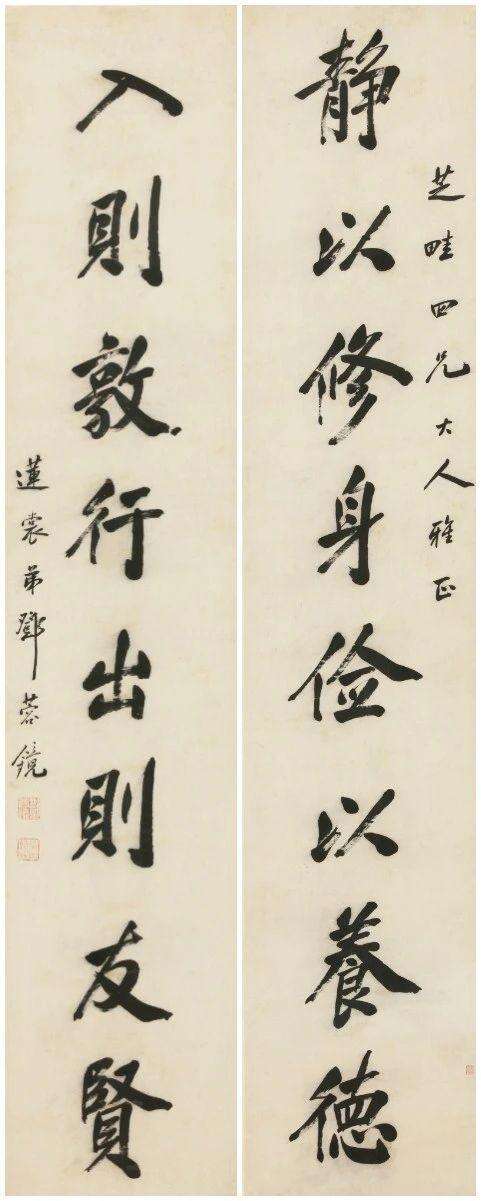 芝畦四兄大人雅正
静以修身俭以養德
入則敦行出則友賢
蓮裳弟鄧蓉鏡